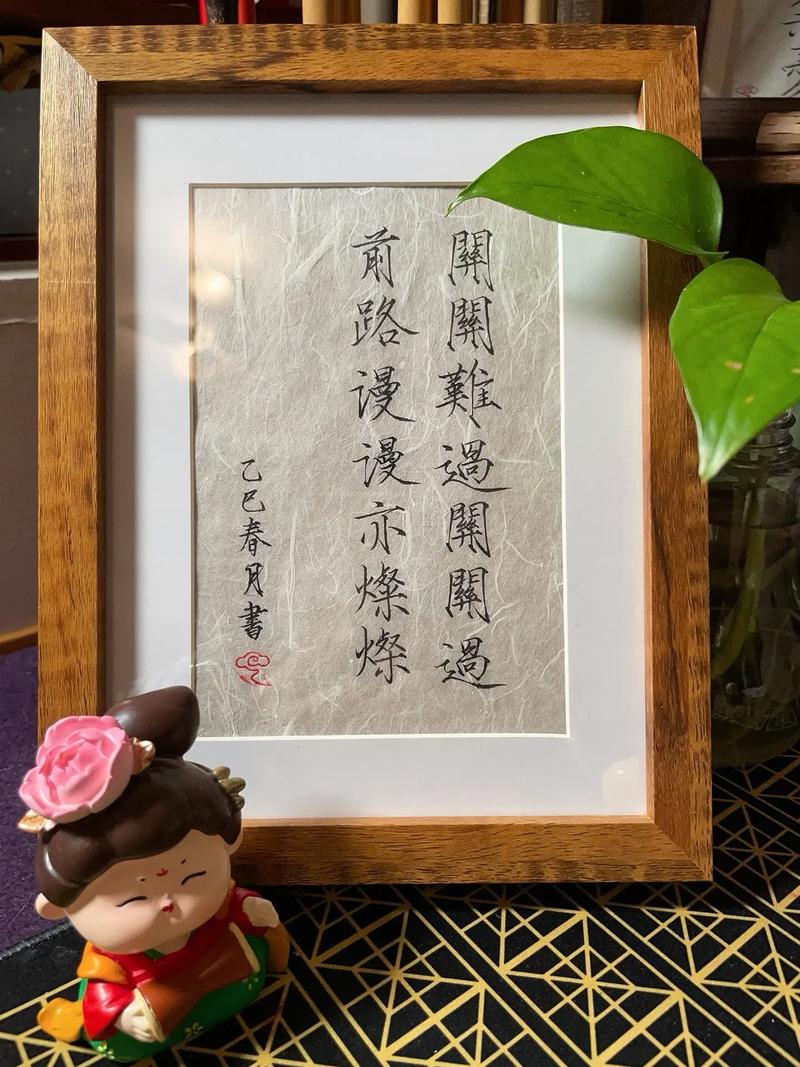 關關難過關關過
前路谩谩亦燦燦
乙巳春月書